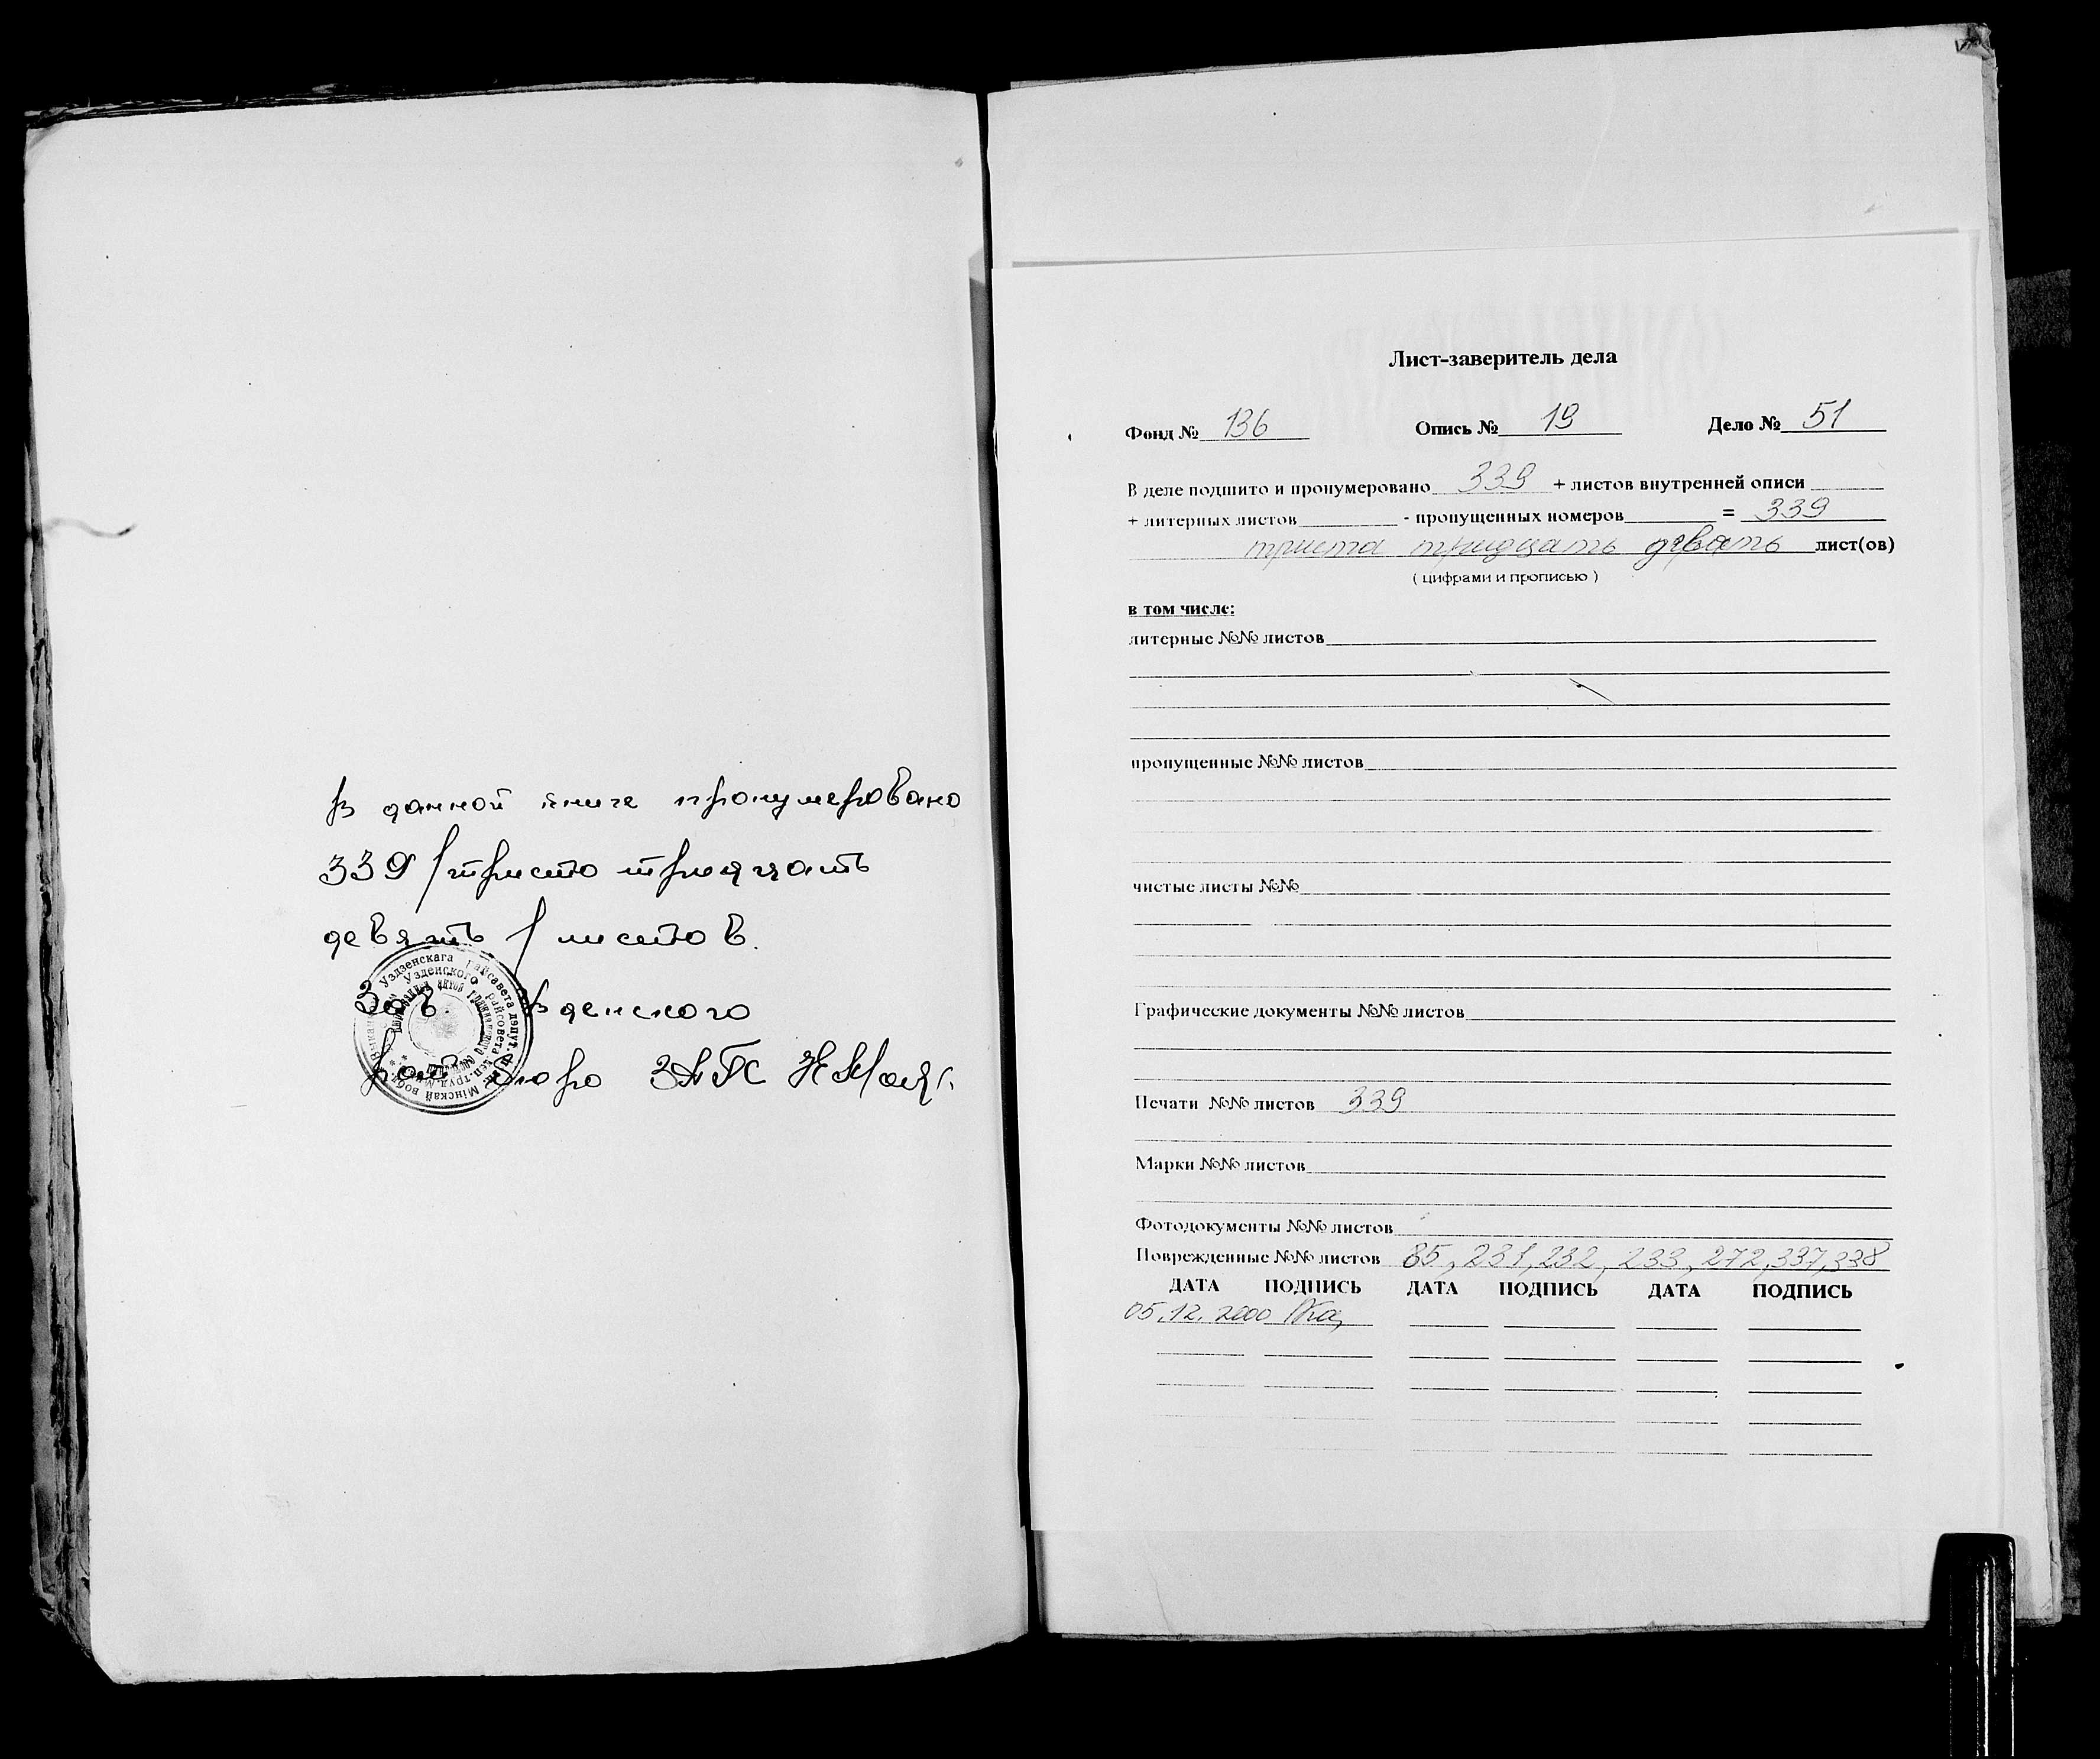 В данной книге пронумеровано
339 /тристо тридцать
девять / листов.
Зав. Узденского
рай бюро ЗАГС
Лист-заверитель дела
Фонд № 136 Опись № 19 Дело № 51
В деле подшито и пронумеровано 339 + листов внутренней описи
+ литерных листов - пропущенных номеров = 339
триста тридцать девять лист(ов)
( цифрами и прописью )
в том числе:
литерные №№ листов
пропущенные №№ листов
чистые листы №№
Графические документы №№ листов
Печати №№ листов 339
Марки №№ листов
Фотодокументы №№ листов
Поврежденные №№ листов 85, 231, 232, 233, 272, 337, 338
ДАТА ПОДПИСЬ ДАТА ПОДПИСЬ ДАТА ПОДПИСЬ
05.12.2000